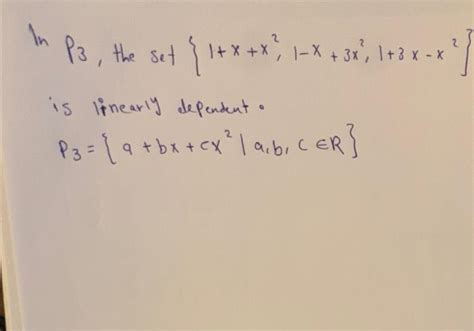 In P3, the set { 1+x+x², 1-x+3x², 1+3x-x² }
is linearly dependent.
P3 = { a+bx+cx² | a,b, c ∈R}